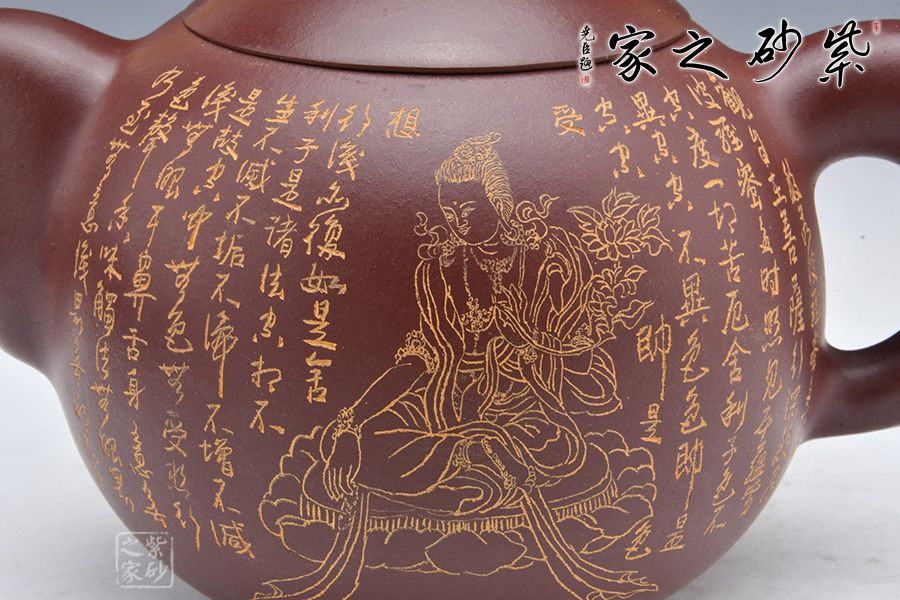 紫砂之家
在菩薩行深
時照見五蘊
度一切苦厄舍利子色不
異空空不異色色即是
空空即是色
受
想
行識亦復如是舍
利子是諸法空相不
生不滅不垢不淨不增不減
是故空中無色無受想行
識無眼耳鼻舌身意無
色聲香味觸法無眼界
紫砂之家